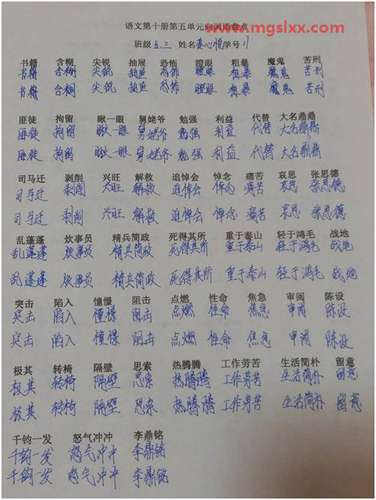 www.mgslxx.com
语文第十册第五单元词语盘点
班级 五.三 姓名 学号 11
书籍 含糊 尖锐 抽屉 恐怖 胆怯 粗暴 魔鬼 苦刑
书籍 含糊 尖锐 抽屉 恐怖 胆怯 粗暴 魔鬼 苦刑
书籍 含糊 尖锐 抽屉 恐怖 胆怯 粗暴 魔鬼 苦刑
匪徒 拘留 瞅一眼 舅姥爷 勉强 利益 代替 大名鼎鼎
匪徒 拘留 瞅一眼 舅姥爷 勉强 利益 代替 大名鼎鼎
匪徒 拘留 瞅一眼 舅姥爷 勉强 利益 代替 大名鼎鼎
司马迁 剥削 兴旺 解救 追悼会 悼念 痛苦 哀思 张思德
司马迁 剥削 兴旺 解救 追悼会 悼念 痛苦 哀思 张思德
司马迁 剥削 兴旺 解救 追悼会 悼念 痛苦 哀思 张思德
乱蓬蓬 炊事员 精兵简政 死得其所 重于泰山 轻于鸿毛 战地
乱蓬蓬 炊事员 精兵简政 死得其所 重于泰山 轻于鸿毛 战地
乱蓬蓬 炊事员 精兵简政 死得其所 重于泰山 轻于鸿毛 战地
突击 陷入 憧憬 阻击 点燃 性命 焦急 审阅 陈设
突击 陷入 憧憬 阻击 点燃 性命 焦急 审阅 陈设
突击 陷入 憧憬 阻击 点燃 性命 焦急 审阅 陈设
极其 转椅 隔壁 思索 热腾腾 工作劳苦 生活简朴 留意
极其 转椅 隔壁 思索 热腾腾 工作劳苦 生活简朴 留意
极其 转椅 隔壁 思索 热腾腾 工作劳苦 生活简朴 留意
千钧一发 怒气冲冲 李鼎铭
千钧一发 怒气冲冲 李鼎铭
千钧一发 怒气冲冲 李鼎铭